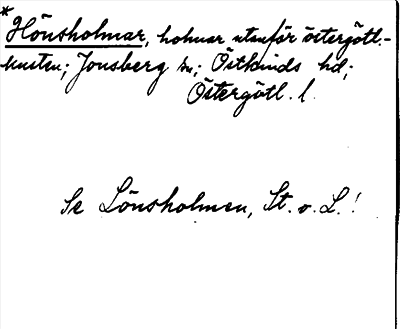 *
Hönsholmar, holmar utanför östergötl.-
kusten; Jonsberg sn; Östkinds hd;
Östergötl. l.
Se Lönsholmen, St. o. L.!